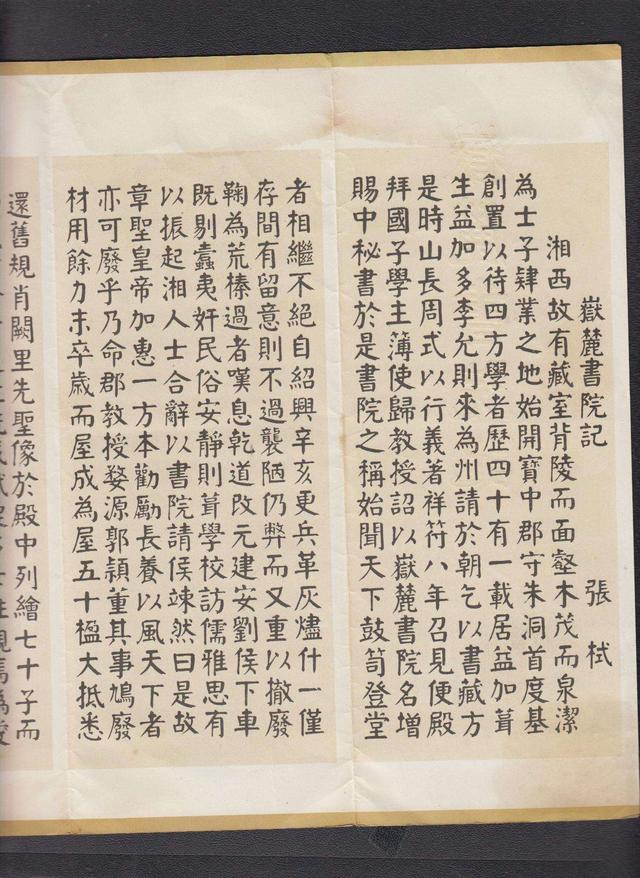 嶽麓書院記
張栻
湘西故有藏室背陵而面壑木茂而泉潔
為士子肄業之地始開寶中郡守朱洞首度基
創置以待四方學者歷四十有一載居益加葺
生益加多李允則來為州請於朝乞以書藏方
是時山長周式以行義著祥符八年召見便殿
拜國子學主簿使歸教授詔以嶽麓書院名增
賜中秘書於是書院之稱始聞天下鼓笥登堂
者相繼不絕自紹興辛亥更兵革灰燼什一僅
存間有留意則不過襲陋仍弊而又重以撤廢
鞠為荒榛過者嘆息乾道改元建安劉侯下車
既剔蠹夷奸民俗安靜則葺學校訪儒雅思有
以振起湘人士合辭以書院請侯竦然曰是故
章聖皇帝加惠一方本勸勵長養以風天下者
亦可廢乎乃命郡教授婺源郭頴董其事鳩廢
材用餘力未卒歲而屋成為屋五十楹大抵悉
還舊規肖闕里先聖像於殿中列繪七十子而